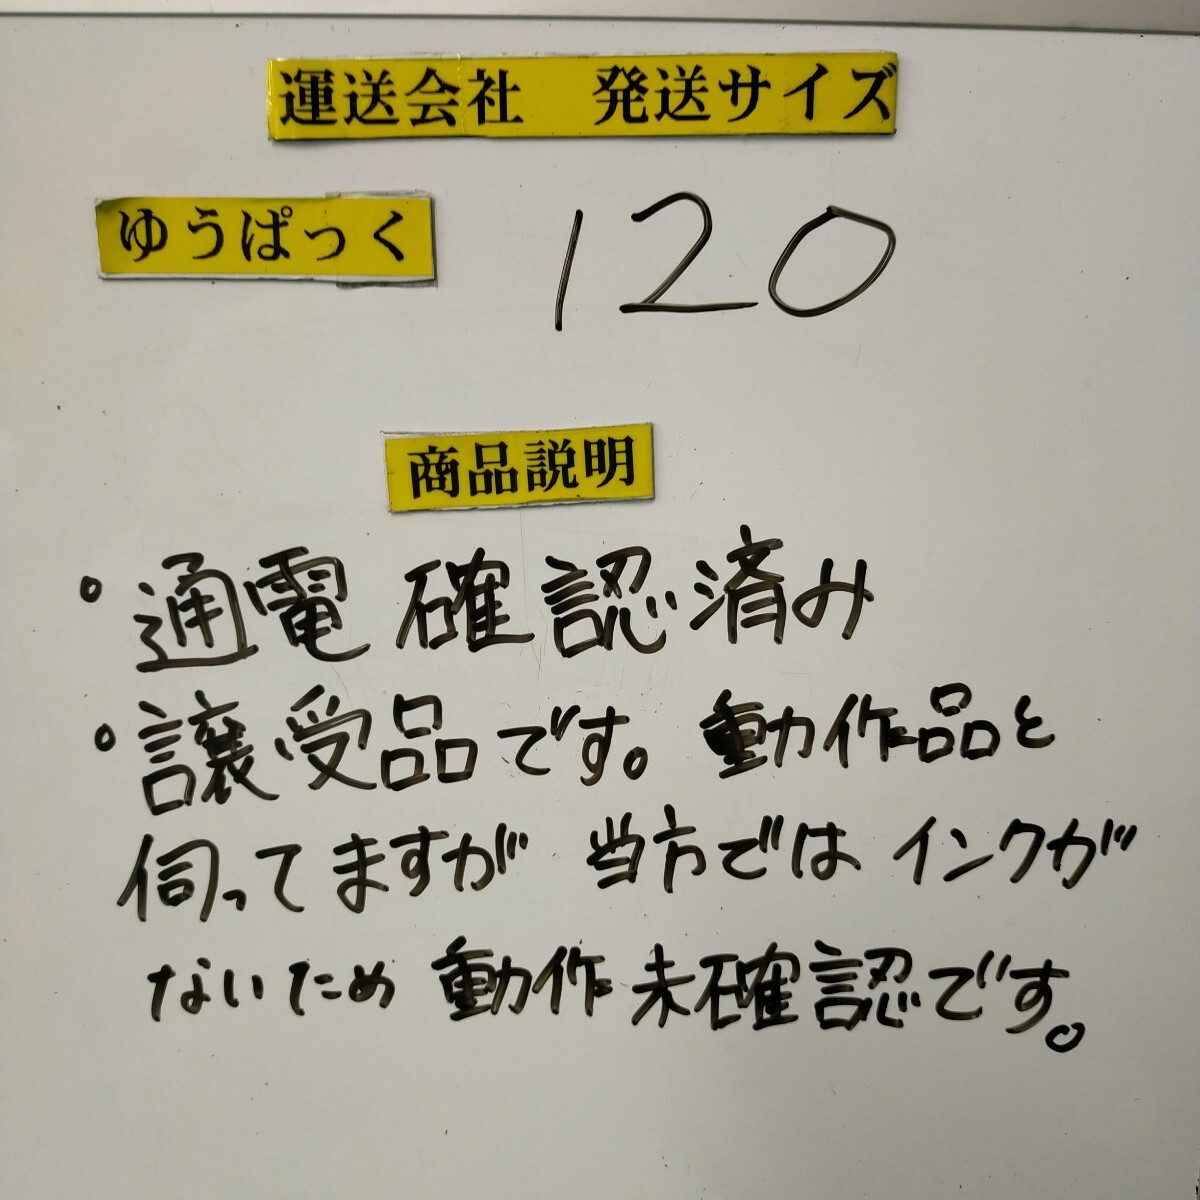 運送会社　発送サイズ
ゆうぱっく 120
商品説明
・通電確認済み
・譲受品です。動作品と
伺ってますが 当方では インクが
ないため 動作未確認です。